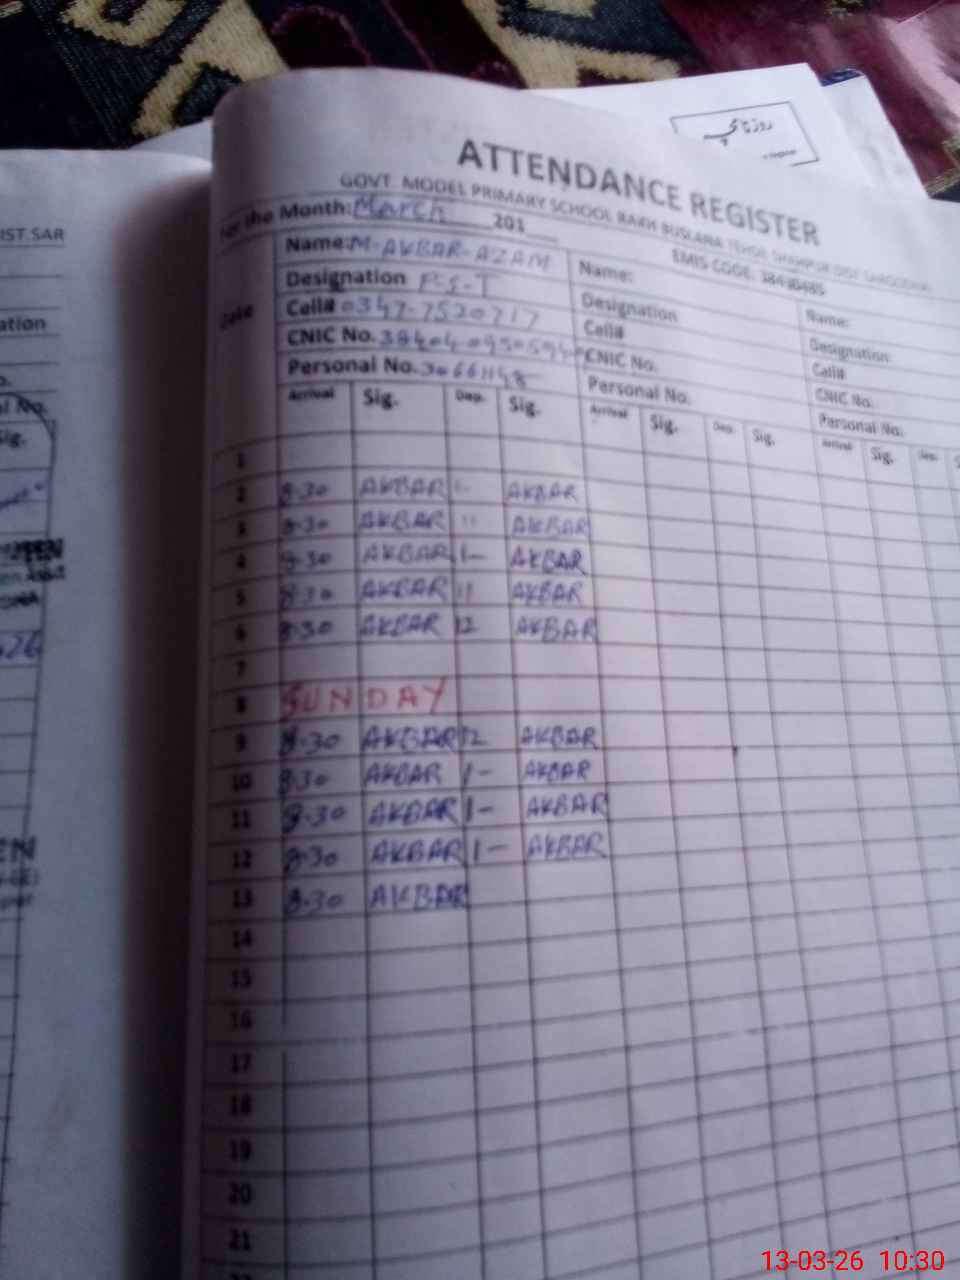 روزنامچہ
ATTENDANCE REGISTER
GOVT. MODEL PRIMARY SCHOOL RAKH BUSLANA TEHSIL SHAHPUR DIST SARGODHA
EMIS CODE:
For the Month: March 201
IST.SAR
Name: M-AKBAR-AZAM Name: Name:
Designation P.S.T Designation Designation
Cell# 0347-7520717 Cell# Cell#
CNIC No. CNIC No. CNIC No.
Personal No. 30661148 Personal No. Personal No:
Date
Arrival Sig. Dep. Sig. Arrival Sig. Dep. Sig. Arrival Sig. Dep.
1
2 8-30 AKBAR AKBAR
3 8-30 AKBAR 11 AKBAR
4 8-30 AKBAR 1- AKBAR
5 8-30 AKBAR 11 AKBAR
6 8-30 AKBAR 12 AKBAR
7
8 SUNDAY
9 8-30 AKBAR 12 AKBAR
10 8-30 AKBAR 1- AKBAR
11 8-30 AKBAR 1- AKBAR
12 8-30 AKBAR 1- AKBAR
13 8-30 AKBAR
14
15
16
17
18
19
20
21
13-03-26 10:30